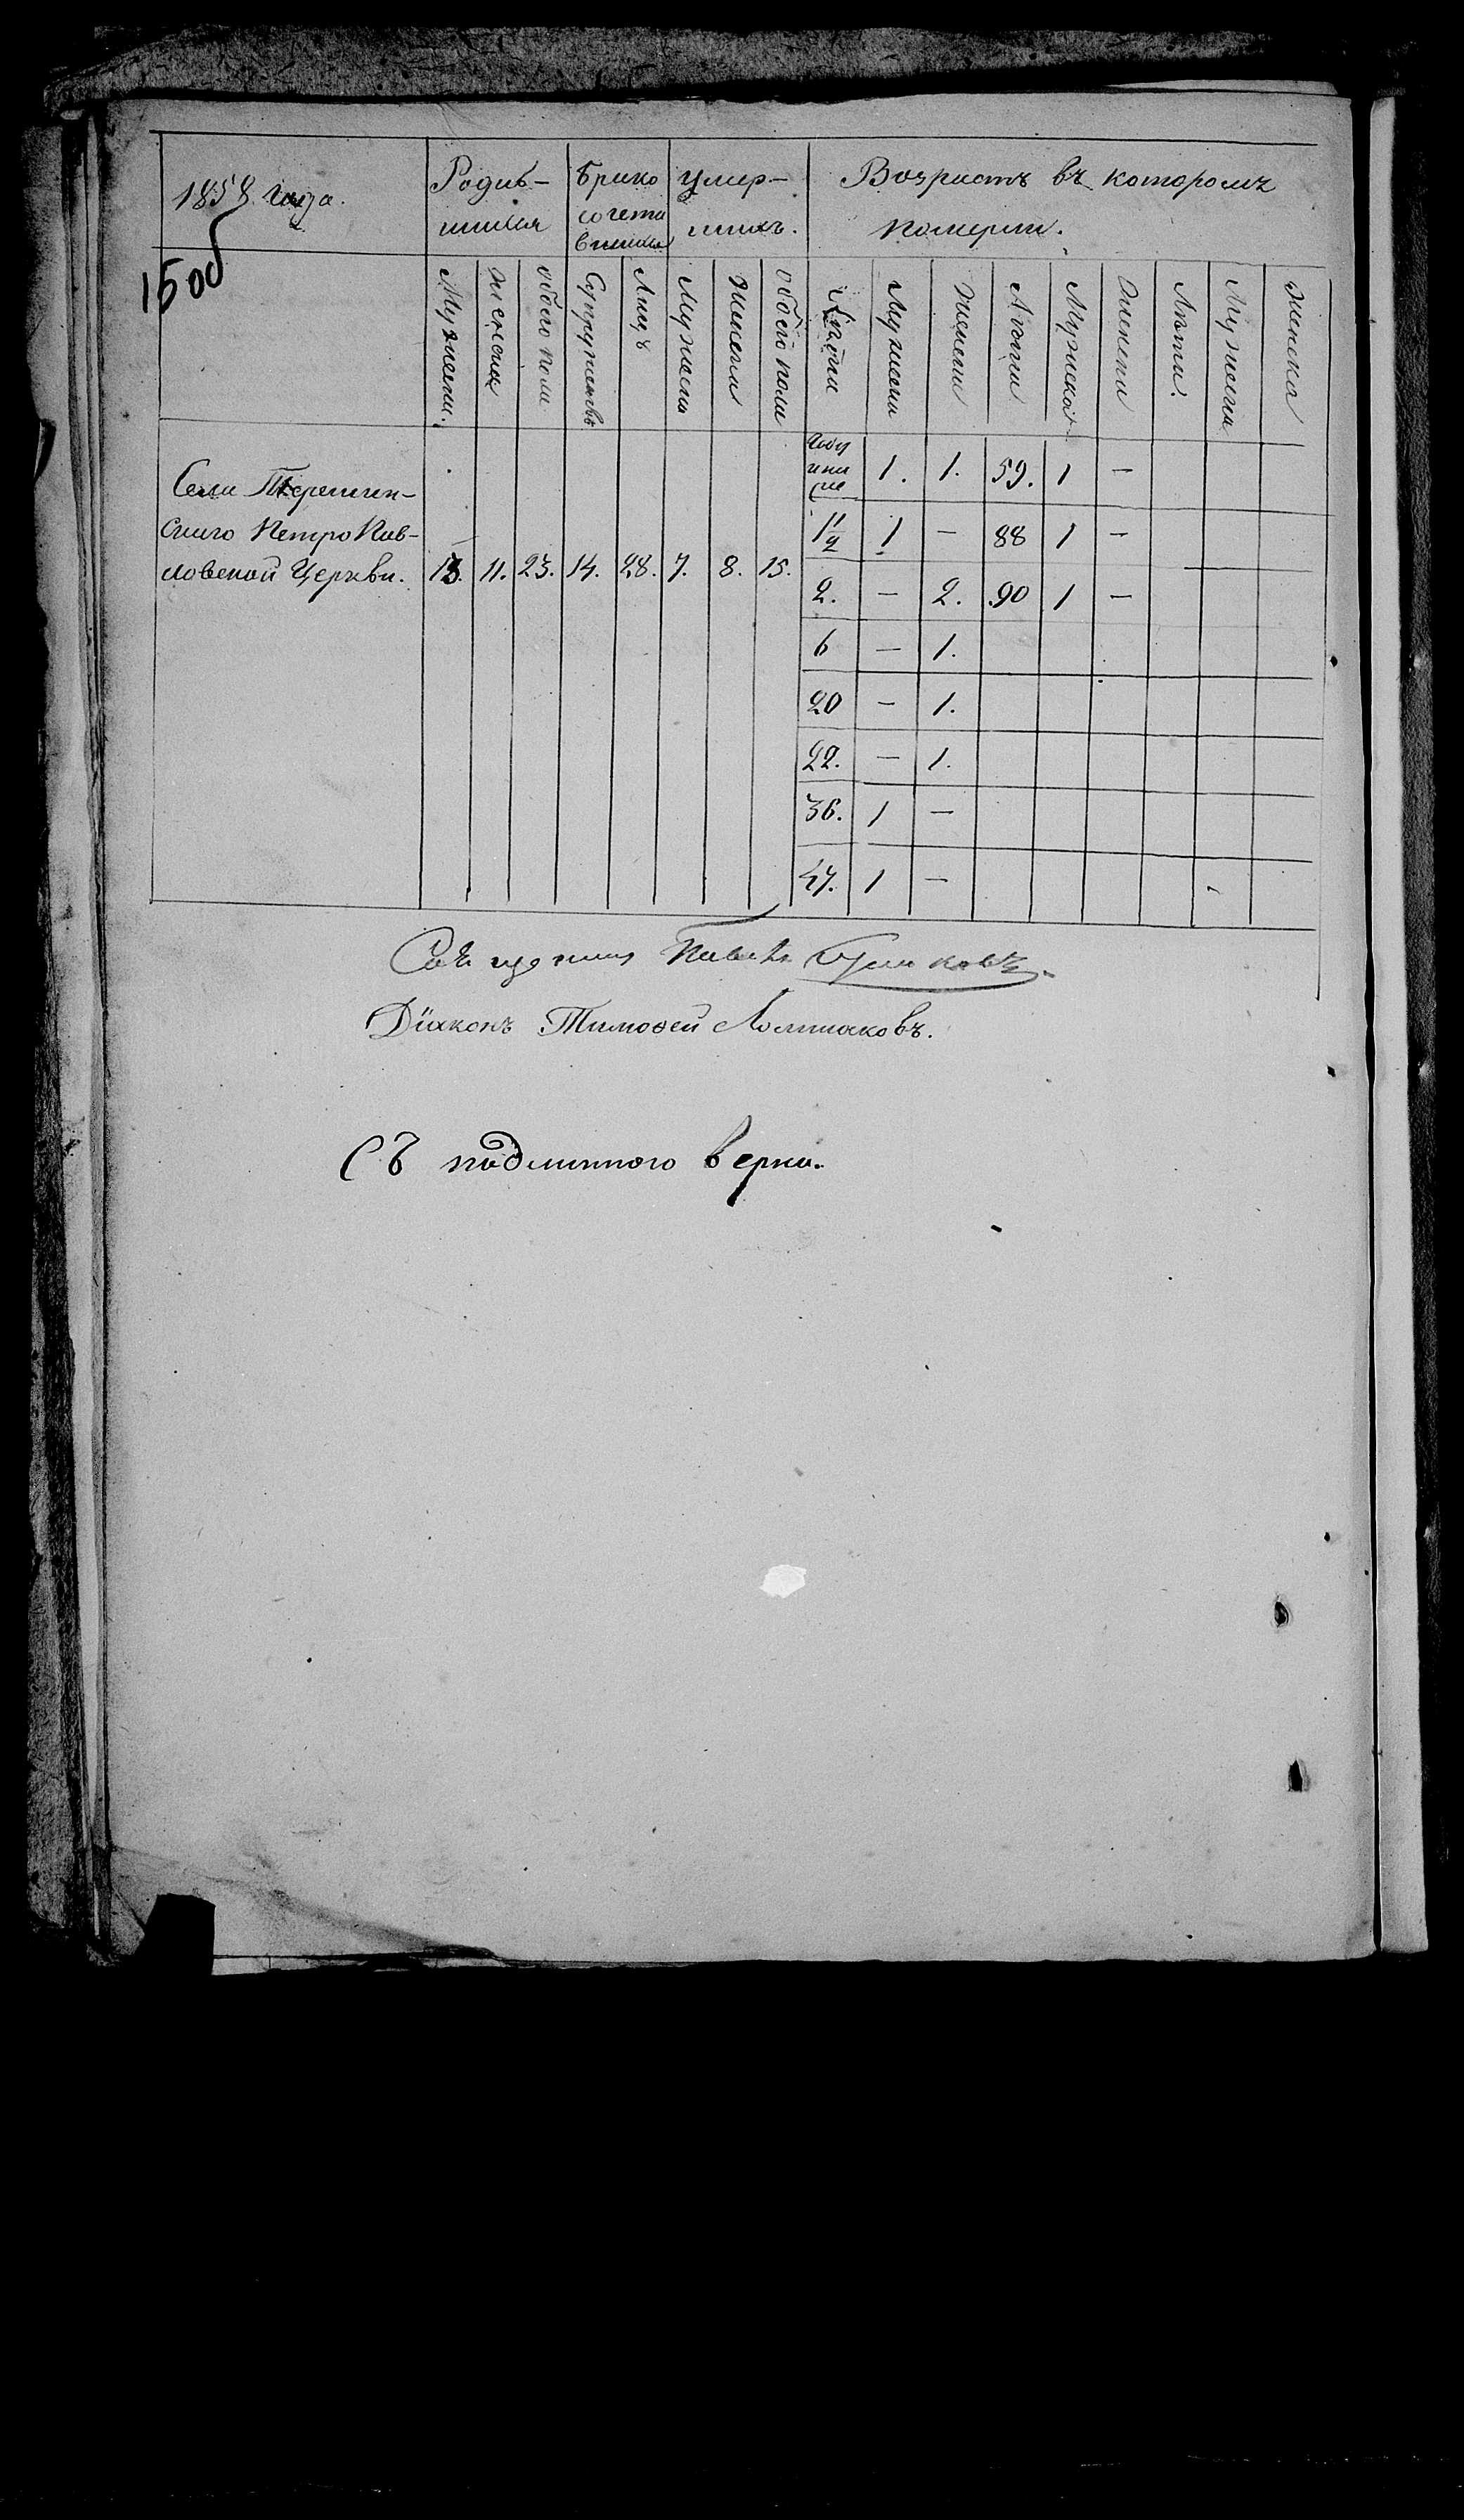 1858 года.
Родив-
шихся
Брако
сочета
вшихся
умер-
шихъ.
Возрастъ въ которомъ
померли.
150об
Мужеска.
женска
обоего пола
Супружествъ
Лицъ
Мужеска
Женска
обоего пола
Лѣта
Мужеска
женска
Лѣта
Мужеска
женска
Лѣта.
Мужеска
женска
Села Терешин-
скаго Петро Пав-
ловской Церкви.
13. 11. 23. 14. 28. 7. 8. 15.
1. 1. 59. 1 —
1 1/2 1 — 88 1 —
2. — 2. 90 1 —
6 — 1.
20 — 1.
22. — 1.
36. 1 —
47. 1 —
Священникъ Павелъ
Діаконъ Тимоѳей
Съ подлиннаго верна.